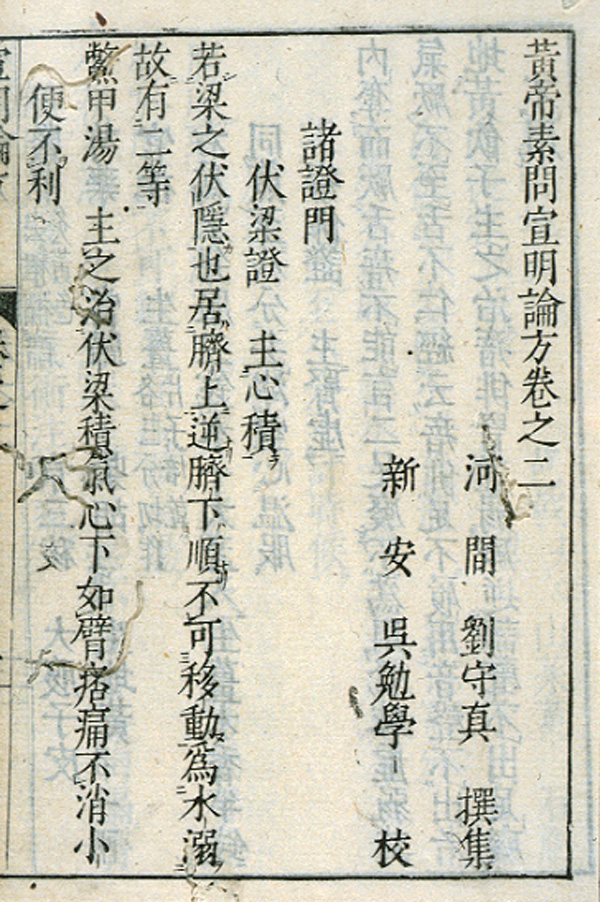 黃帝素問宣明論方卷之二
河間劉守真　撰集
新安吳勉學　校
諸證門
伏梁證　主心積
若梁之伏隱也居臍上逆臍下順不可移動為水溺
故有二等
鱉甲湯　主之治伏梁積氣心下如臂痞痛不消小
便不利